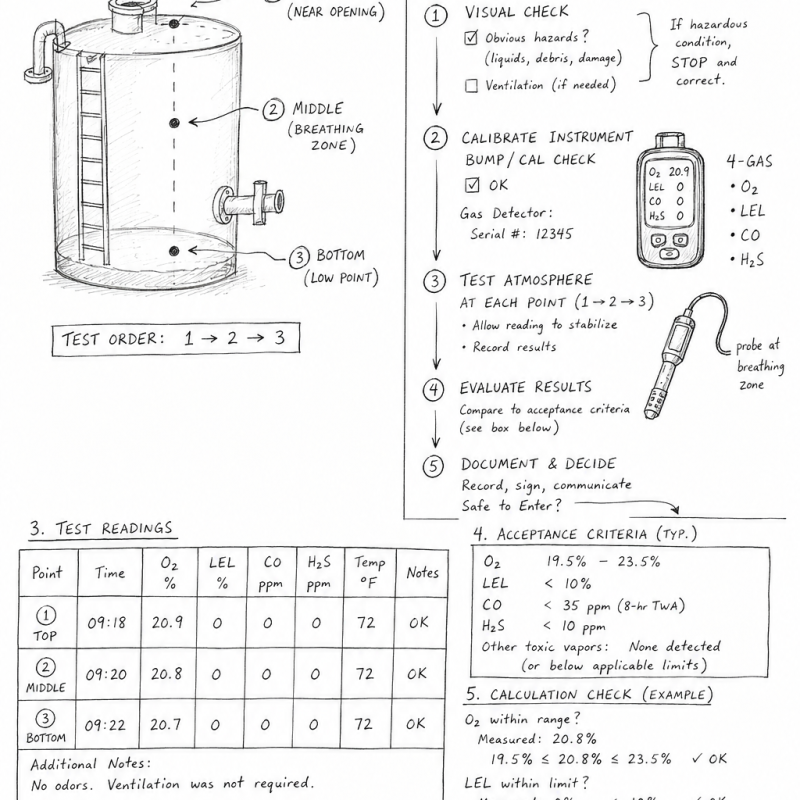 (NEAR OPENING)
② MIDDLE
(BREATHING
ZONE)
③ BOTTOM
(LOW POINT)
TEST ORDER: 1 → 2 → 3
① VISUAL CHECK
☑ Obvious hazards?
(liquids, debris, damage)
☐ Ventilation (if needed)
If hazardous
condition,
STOP and
correct.
② CALIBRATE INSTRUMENT
BUMP/CAL CHECK
☑ OK
Gas Detector:
Serial #: 12345
O₂ 20.9
LEL 0
CO 0
H₂S 0
4-GAS
• O₂
• LEL
• CO
• H₂S
③ TEST ATMOSPHERE
AT EACH POINT (1→2→3)
• Allow reading to stabilize
• Record results
probe at
breathing
zone
④ EVALUATE RESULTS
Compare to acceptance criteria
(see box below)
⑤ DOCUMENT & DECIDE
Record, sign, communicate
Safe to Enter?
3. TEST READINGS
Point Time O₂ % LEL % CO ppm H₂S ppm Temp °F Notes
① TOP 09:18 20.9 0 0 0 72 OK
② MIDDLE 09:20 20.8 0 0 0 72 OK
③ BOTTOM 09:22 20.7 0 0 0 72 OK
Additional Notes:
No odors. Ventilation was not required.
4. ACCEPTANCE CRITERIA (TYP.)
O₂ 19.5% – 23.5%
LEL < 10%
CO < 35 ppm (8-hr TWA)
H₂S < 10 ppm
Other toxic vapors: None detected
(or below applicable limits)
5. CALCULATION CHECK (EXAMPLE)
O₂ within range?
Measured: 20.8%
19.5% ≤ 20.8% ≤ 23.5% ✓ OK
LEL within limit?